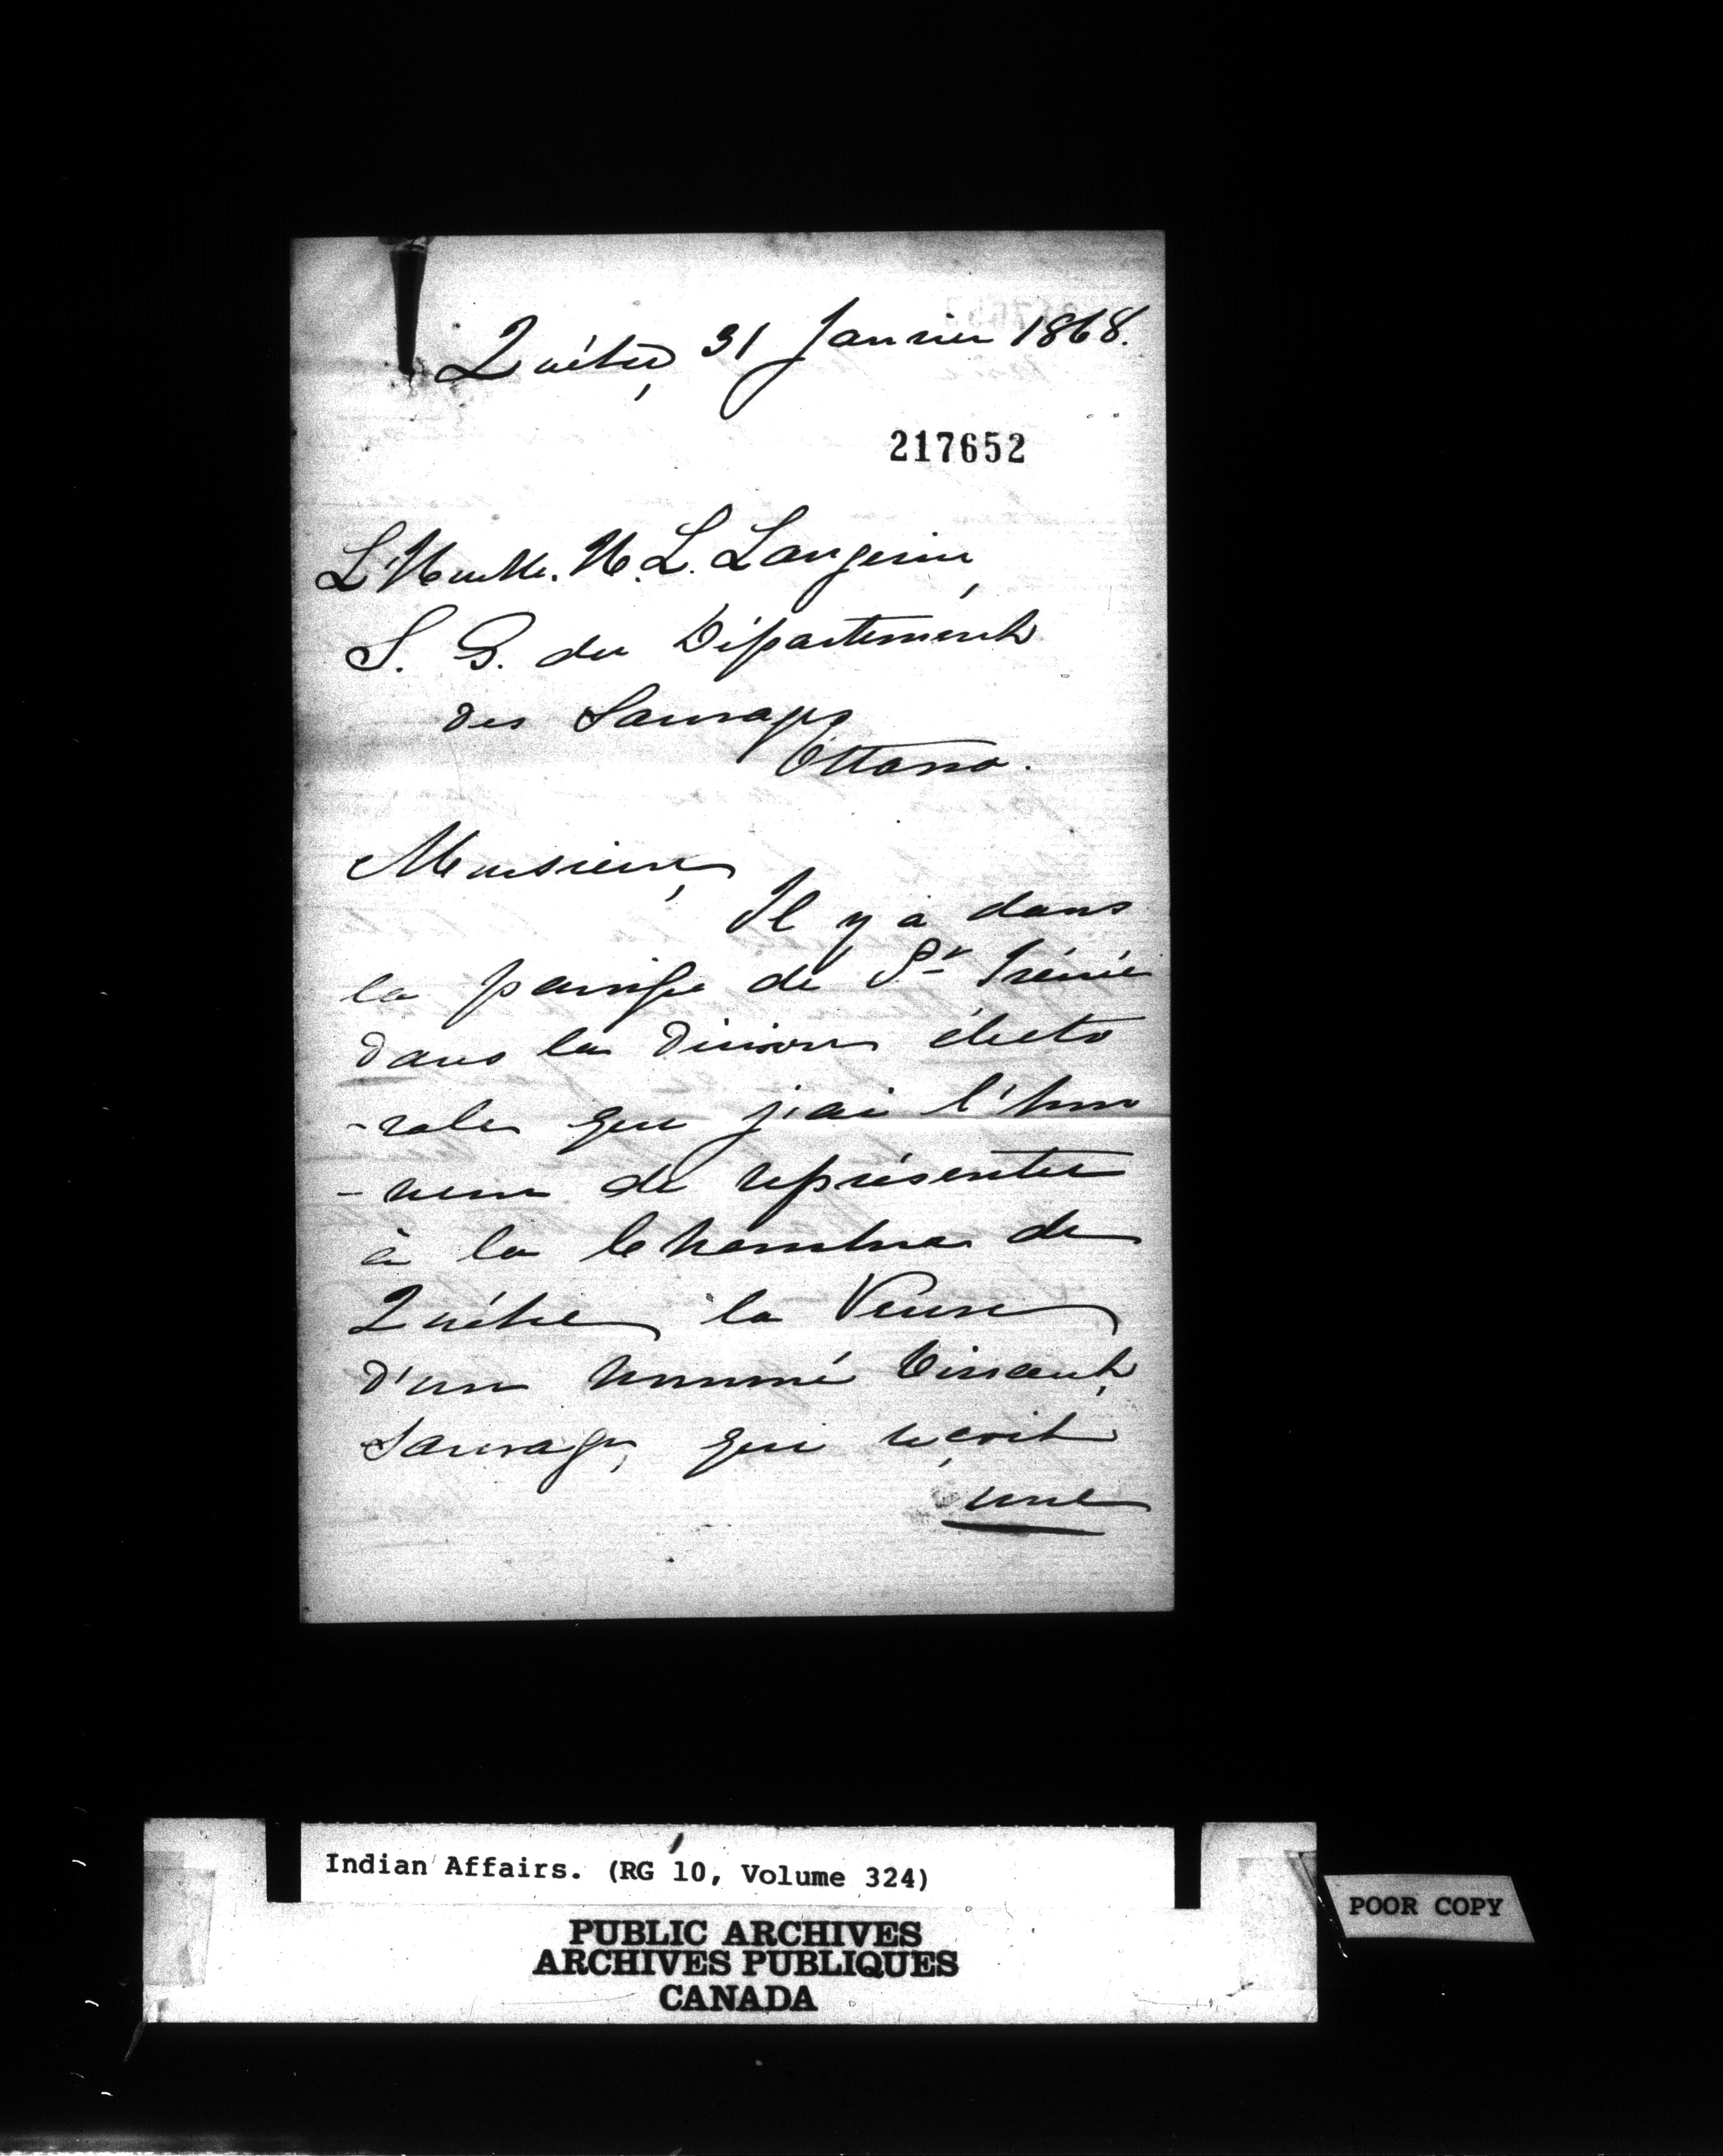 Québec, 31 Janvier 1868.
217652
L'Honble. H. L. Langevin,
S. G. du Département
des Sauvages
Ottawa.
Monsieur,
Il y a dans
la paroisse de St Irénée
dans la division électo
-rale que j'ai l'hon
-neur de représenter
à la Chambre de
Québec la Veuve
d'un nommé
Sauvage, qui reçoit
une
Indian Affairs. (RG 10, Volume 324)
PUBLIC ARCHIVES
ARCHIVES PUBLIQUES
CANADA
POOR COPY